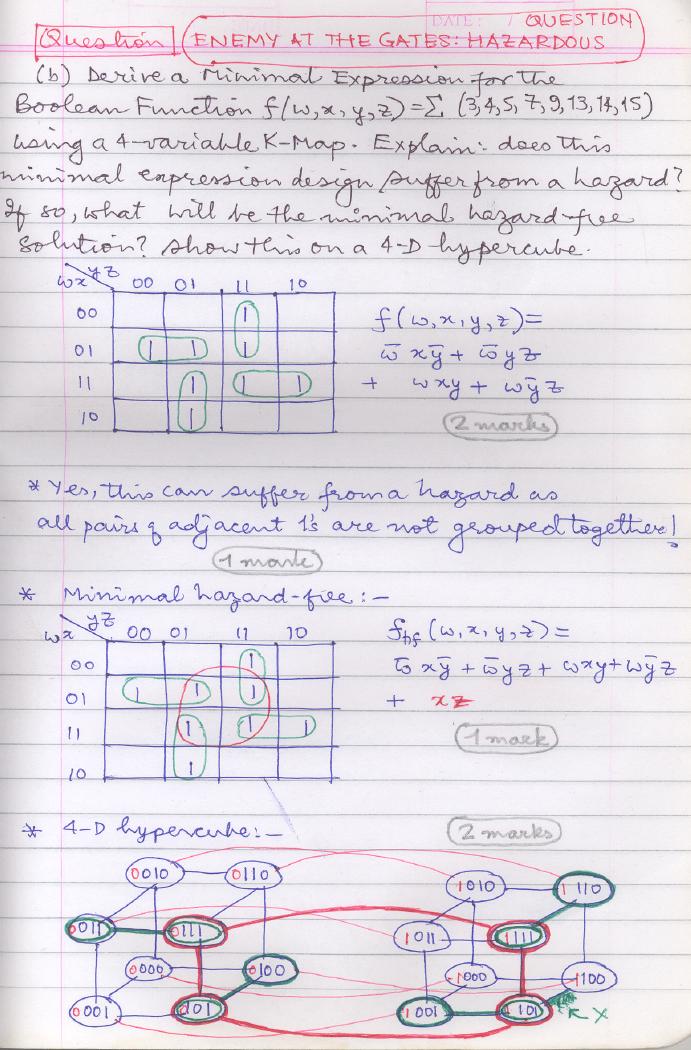 DATE: / QUESTION
Question ENEMY AT THE GATES: HAZARDOUS
(b) Derive a Minimal Expression for the
Boolean Function f(w,x,y,z) = Σ (3,4,5,7,9,13,14,15)
using a 4-variable K-Map. Explain: does this
minimal expression design suffer from a hazard?
If so, what will be the minimal hazard-free
solution? Show this on a 4-D hypercube.
wx yz 00 01 11 10
00 1
01 1 1 1
11 1 1 1
10 1
f(w,x,y,z) =
w̄xȳ + w̄yz
+ wxy + wȳz
2 marks
* Yes, this can suffer from a hazard as
all pairs of adjacent 1's are not grouped together!
1 mark
* Minimal hazard-free:-
wx yz 00 01 11 10
00 1
01 1 1 1
11 1 1 1
10 1
fhf (w,x,y,z) =
w̄xȳ + w̄yz + wxy + wȳz
+ xz
1 mark
* 4-D hypercube:- 2 marks
0010 0110 1010 1110
0011 0111 1011 1111
0000 0100 1000 1100
0001 0101 1001 1101
X